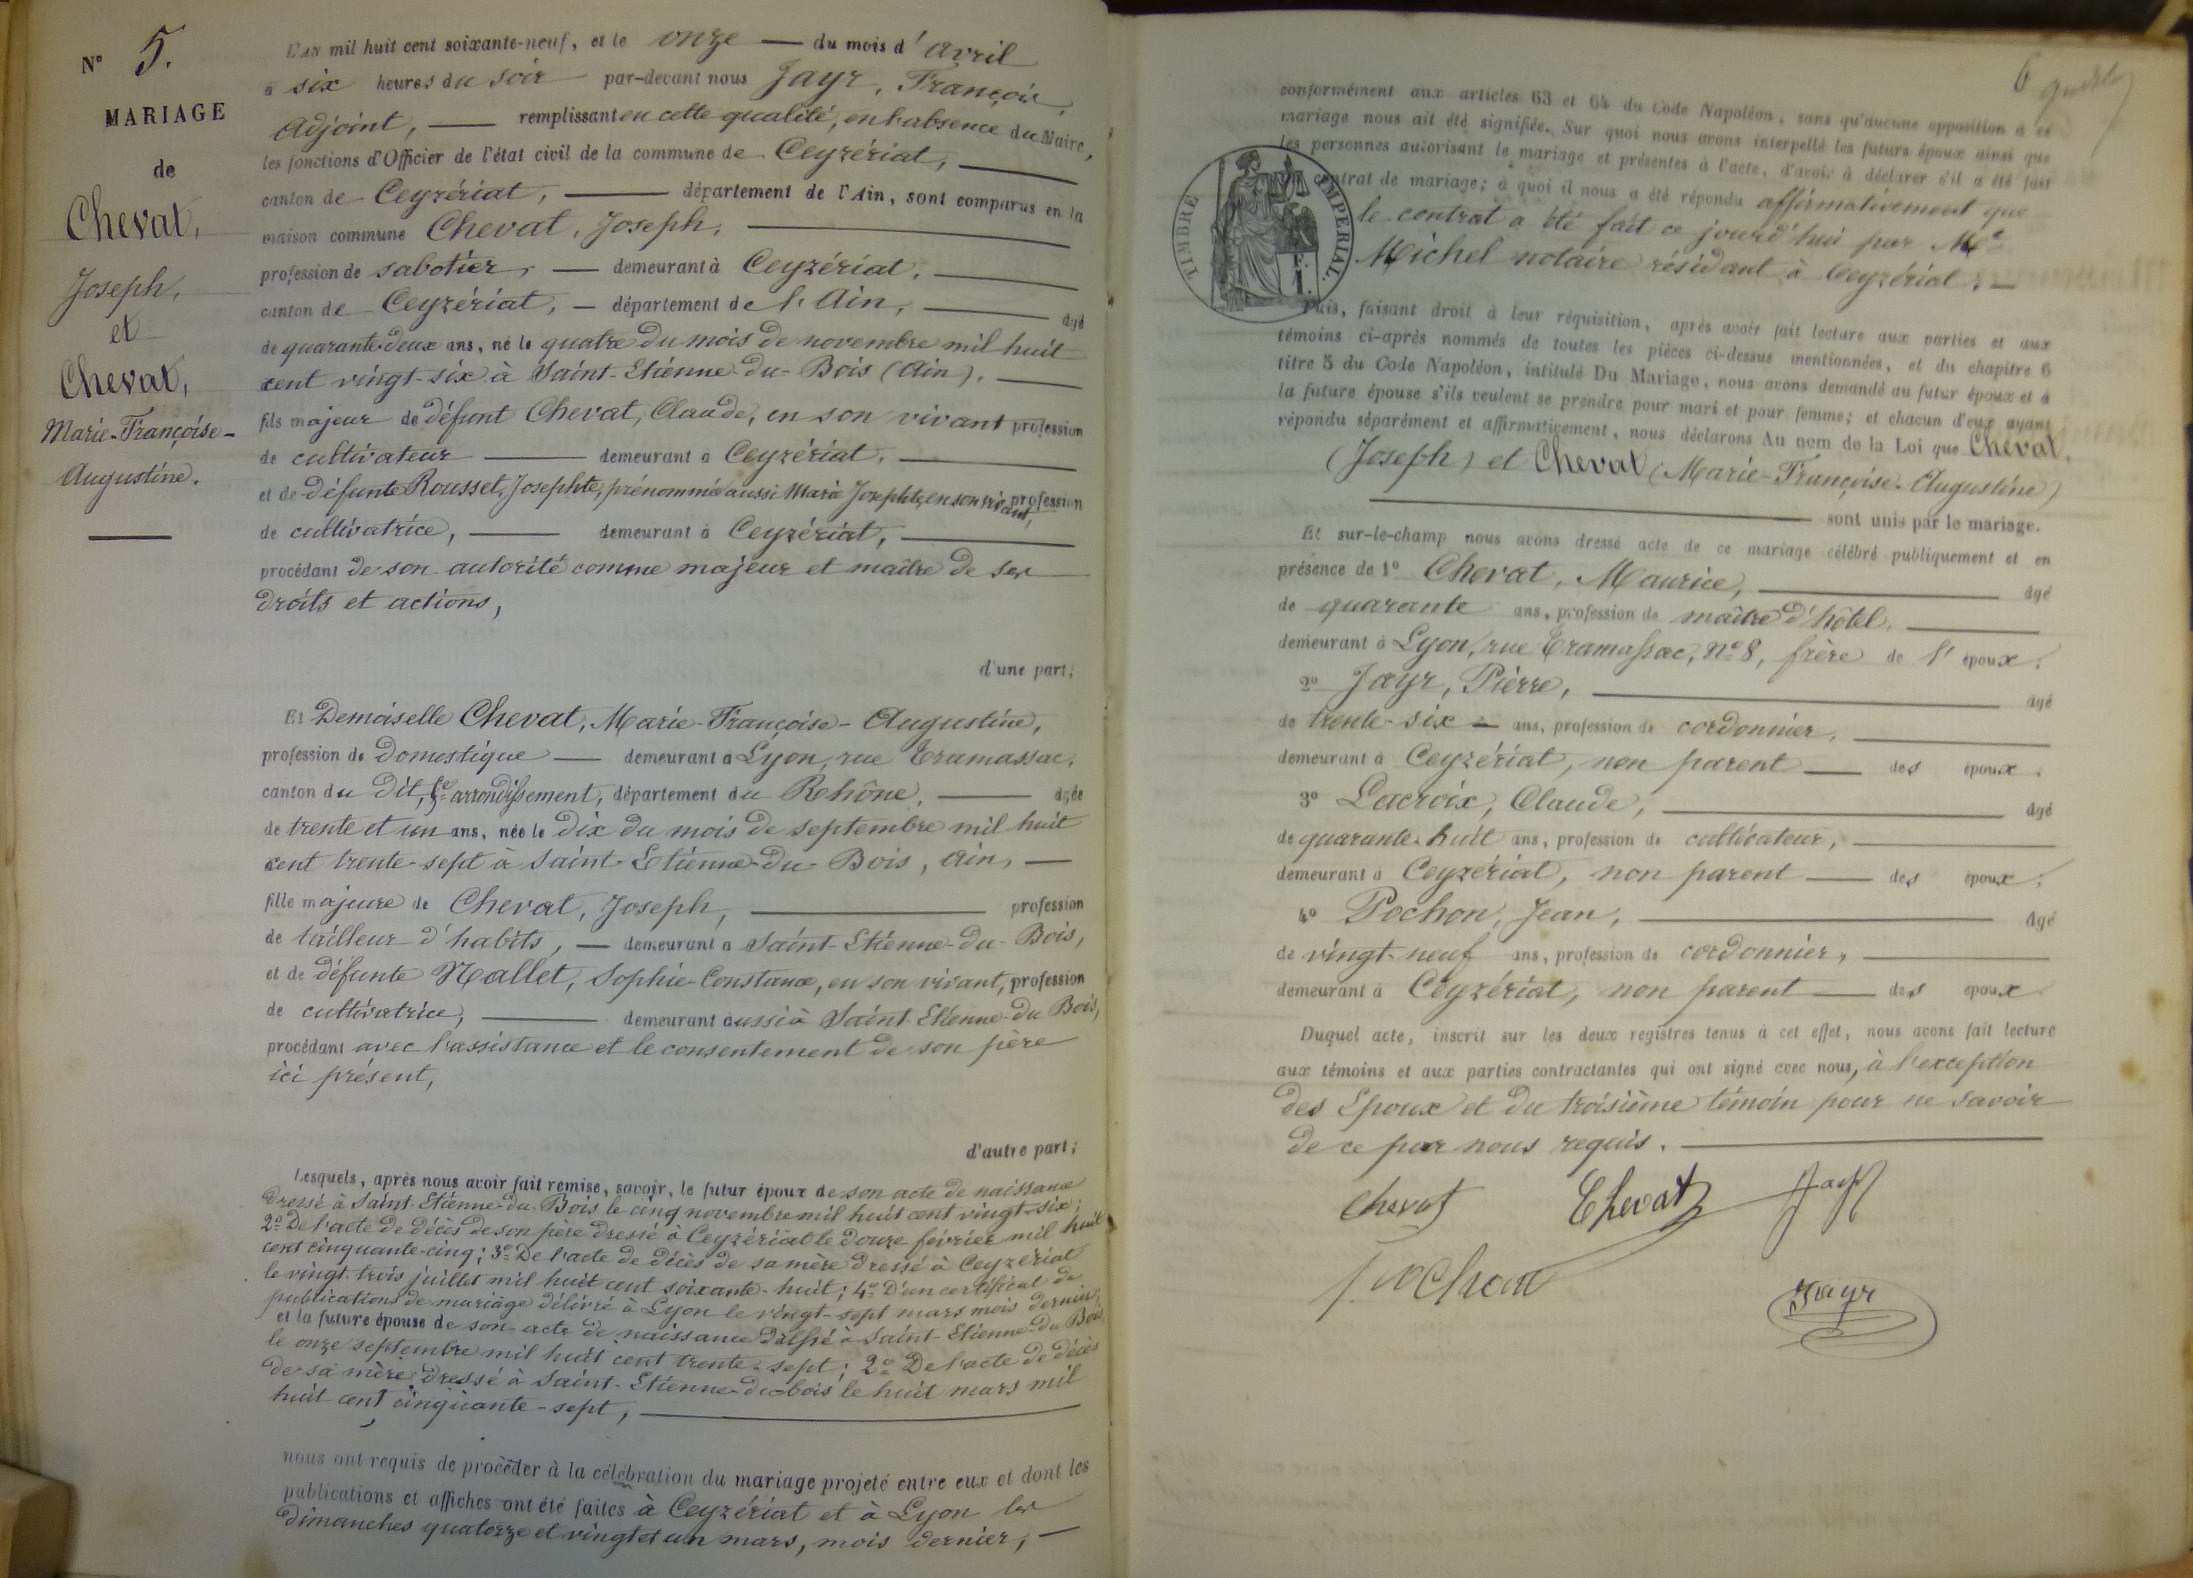 N° 5.
MARIAGE
de
Chevat,
Joseph,
et
Chevat,
Marie-Françoise-
Augustine.
L'AN mil huit cent soixante-neuf, et le onze du mois d'avril
à six heures du soir par-devant nous Jayr, François,
Adjoint, remplissant en cette qualité, en l'absence du Maire,
les fonctions d'Officier de l'état civil de la commune de Ceyzériat,
canton de Ceyzériat, département de l'Ain, sont comparus en la
maison commune Chevat, Joseph,
profession de sabotier, demeurant à Ceyzériat,
canton de Ceyzériat, département de l'Ain, âgé
de quarante-deux ans, né le quatre du mois de novembre mil huit
cent vingt-six à Saint-Etienne-du-Bois (Ain),
fils majeur de défunt Chevat, Claude, en son vivant profession
de cultivateur demeurant à Ceyzériat,
et de défunte Rousset, Josephte, prénommée aussi Marie Josephte, en son vivant, profession
de cultivatrice, demeurant à Ceyzériat,
procédant de son autorité comme majeur et maître de ses
droits et actions,
d'une part;
Et Demoiselle Chevat, Marie-Françoise-Augustine,
profession de domestique demeurant à Lyon, rue Tramassac,
canton du dit, 5e arrondissement, département du Rhône, âgée
de trente et un ans, née le dix du mois de septembre mil huit
cent trente-sept à Saint-Etienne-du-Bois, Ain,
fille majeure de Chevat, Joseph, profession
de tailleur d'habits, demeurant à Saint-Etienne-du-Bois,
et de défunte Nallet, Sophie-Constance, en son vivant, profession
de cultivatrice, demeurant aussi à Saint-Etienne-du Bois,
procédant avec l'assistance et le consentement de son père
ici présent,
d'autre part;
Lesquels, après nous avoir fait remise, savoir, le futur époux de son acte de naissance
dressé à Saint-Etienne-du-Bois le cinq novembre mil huit cent vingt-six;
2° De l'acte de décès de son père dressé à Ceyzériat le douze février mil huit
cent cinquante-cinq; 3° De l'acte de décès de sa mère dressé à Ceyzériat
le vingt-trois juillet mil huit cent soixante-huit; 4° D'un certificat de
publications de mariage délivré à Lyon le vingt-sept mars mois dernier,
et la future épouse de son acte de naissance dressé à Saint-Etienne-du Bois
le onze septembre mil huit cent trente-sept; 2° De l'acte de décès
de sa mère dressé à Saint-Etienne-du-bois le huit mars mil
huit cent cinquante-sept,
nous ont requis de procéder à la célébration du mariage projeté entre eux et dont les
publications et affiches ont été faites à Ceyzériat et à Lyon les
dimanches quatorze et vingt et un mars, mois dernier,
6
conformément aux articles 63 et 64 du Code Napoléon, sans qu'aucune opposition à ce
mariage nous ait été signifiée. Sur quoi nous avons interpellé les futurs époux ainsi que
les personnes autorisant le mariage et présentes à l'acte, d'avoir à déclarer s'il a été fait
contrat de mariage; à quoi il nous a été répondu affirmativement que
le contrat a été fait ce jourd'hui par Me
Michel notaire résidant à Ceyzériat;
TIMBRE IMPERIAL.
1 F.
Puis, faisant droit à leur réquisition, après avoir fait lecture aux parties et aux
témoins ci-après nommés de toutes les pièces ci-dessus mentionnées, et du chapitre 6
titre 5 du Code Napoléon, intitulé Du Mariage, nous avons demandé au futur époux et à
la future épouse s'ils veulent se prendre pour mari et pour femme; et chacun d'eux ayant
répondu séparément et affirmativement, nous déclarons Au nom de la Loi que Chevat,
(Joseph) et Chevat (Marie-Françoise-Augustine)
sont unis par le mariage.
Et sur-le-champ nous avons dressé acte de ce mariage célébré publiquement et en
présence de 1° Chevat, Maurice, âgé
de quarante ans, profession de maître d'hôtel,
demeurant à Lyon, rue Tramassac, N° 8, frère de l'époux;
2° Jayr, Pierre, âgé
de trente-six ans, profession de cordonnier,
demeurant à Ceyzériat, non parent des époux.
3° Lacroix, Claude, âgé
de quarante-huit ans, profession de cultivateur,
demeurant à Ceyzériat, non parent des époux;
4° Pochon, Jean, âgé
de vingt-neuf ans, profession de cordonnier,
demeurant à Ceyzériat, non parent des époux
Duquel acte, inscrit sur les deux registres tenus à cet effet, nous avons fait lecture
aux témoins et aux parties contractantes qui ont signé avec nous, à l'exception
des Epoux et du troisième témoin pour ne savoir
de ce par nous requis.
Chevat Chevat Jayr
J. Pochon
Jayr